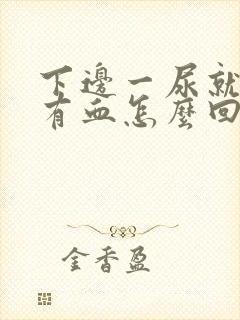 下邊一尿就
有血怎麼回
金香盈